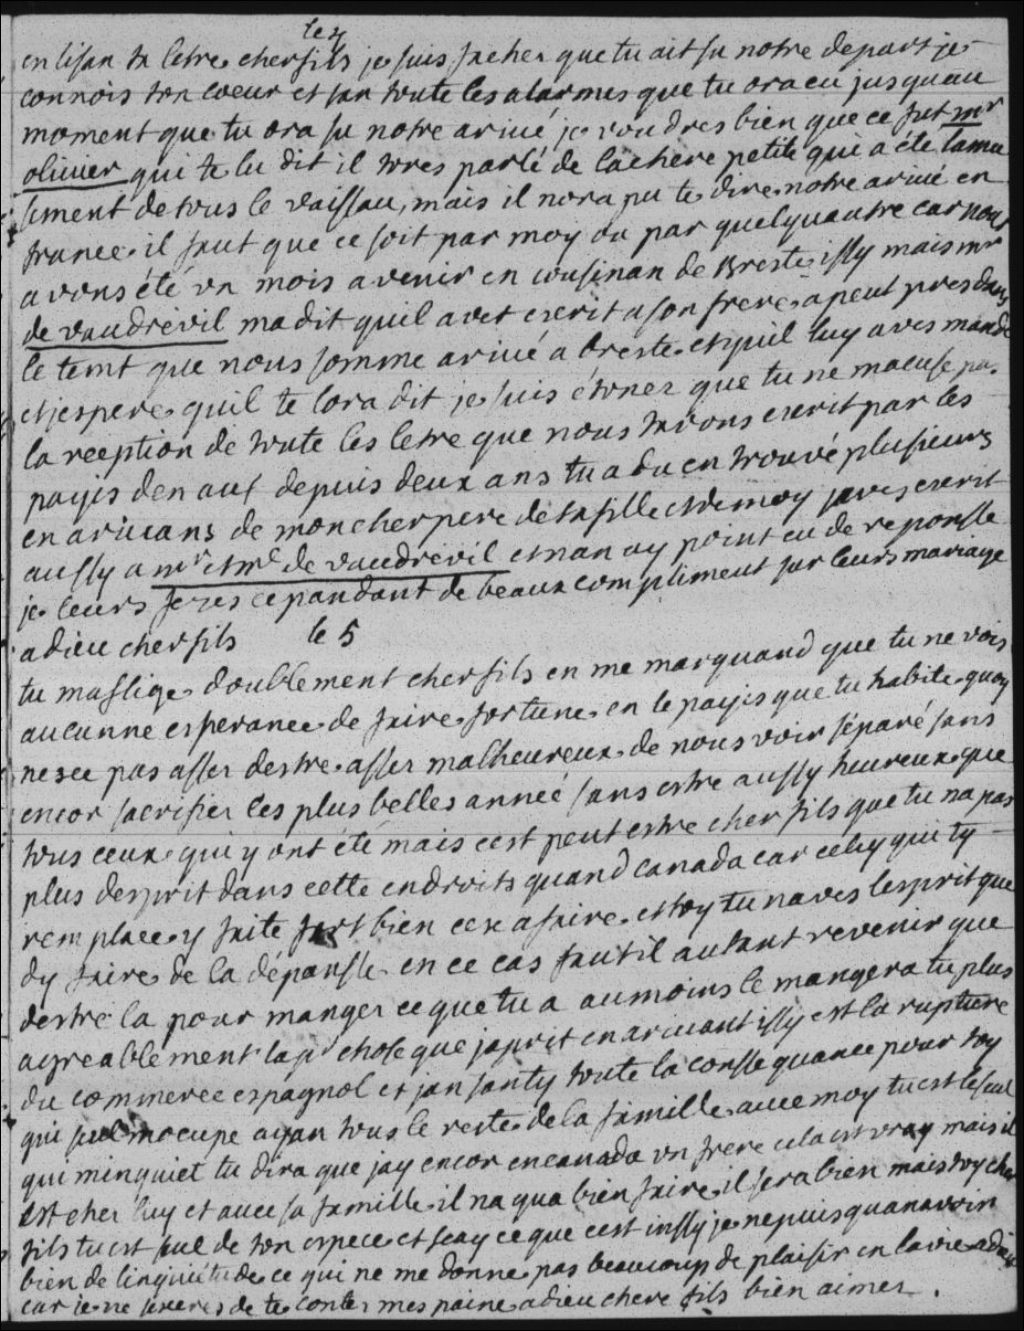 le 4
en lisan ta letre cher fils je suis facher que tu ait su notre depart je
connois ton coeur et san toute les alarmes que tu ora eu jusquau
moment que tu ora su notre arivé je voudres bien que ce fut mr
olivier qui te lu dit il tores parlé de lachere petite qui a été lamu
sement de tous le vaissau, mais il nora pu te dire notre arivé en
france il faut que ce soit par moy ou par quelquautre car nous
avons été un mois a venir en cousinan de Breste issy mais mr
de vaudrevil madit quil avet ecrit a son frere apeut pres dans
le temt que nous somme arivé a breste et quil luy aves mandé
et jespere quil te lora dit je suis étonez que tu ne macuse pas
la reception de toute les letre que nous tavons ecrit par les
payis den aut depuis deux ans tu a du en trouvé plusieurs
en arivans de mon cher pere de ta fille et de moy javes ecrit
aussy a mr et me de vaudrevil et nan ay point eu de reponsse
je leurs feres cepandant de beaux compliment sur leurs mariage
adieu cher fils le 5
tu maflige doublement cher fils en me marquand que tu ne vois
aucunne esperance de faire fortune en le payis que tu habite quoy
nesce pas asser destre asser malheureux de nous voir séparé sans
encor sacrifier les plus belles année sans estre aussy heureux que
tous ceux qui y ont été mais cest peut estre cher fils que tu na pas
plus desprit dans cette endroits quand canada car celuy qui ty
remplace y faite fort bien cex afaire et toy tu naves lesprit que
dy faire de la dépansse en ce cas faut il autant revenir que
destre la pour manger ce que tu a aumoins le mangera tu plus
agreablement lap chose que japrit en arivant issy est la rupture
du commerce espagnol et jan santy toute la conssequance pour toy
qui seul mocupe ayan tous le reste de la famille avec moy tu est le seul
qui minquiet tu dira que jay encor encanada un frere cela est vray mais il
est cher luy et avec sa famille il na qua bien faire il sera bien mais toy cher
fils tu est seul de ton espece et scay ce que cest inssy je ne puis quanavoir
bien de linquiétude ce qui ne me donne pas beaucoup de plaisir en la vie adieu
car je ne feres de te conter mes paine adieu chere fils bien aimer.